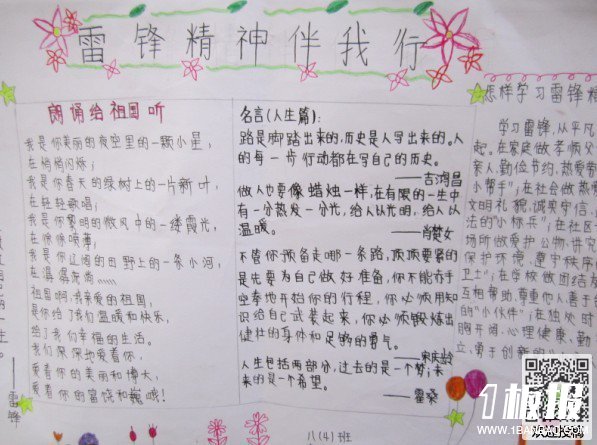 雷锋精神伴我行
朗诵给祖国听
我是你美丽的夜空里的一颗小星,
在悄悄闪烁;
我是你春天的绿树上的一片新叶,
在轻轻歌唱;
我是你黎明的微风中的一缕霞光,
在
我是你辽阔的田野上的一条小河,
在潺潺流淌……
祖国啊,我亲爱的祖国,
是你给了我们温暖和快乐,
给了我们幸福的生活。
我们深深地爱着你,
爱着你的美丽和博大,
爱着你的富饶和巍峨!
名言(人生篇):
路是脚踏出来的,历史是人写出来的。人
的每一步行动都在写自己的历史。
——吉鸿昌
做人也要像蜡烛一样,在有限的一生中
有一分热发一分光,给人以光明,给人以
温暖。
——肖楚女
不管你预备走哪一条路,顶顶要紧的
是先要为自己做好准备,你不能赤手
空拳地开始你的行程,你必须用知
识给自己武装起来,你必须锻炼出
健壮的身体和足够的勇气。
——宋庆龄
人生包括两部分,过去的是一个梦;未
来的是一个希望。
——霍桑
怎样学习雷锋精
学习雷锋,从平凡
起。在家庭做孝顺父
亲人,勤俭节约,热爱劳
小帮手";在社会做热爱
文明礼貌,诚实守信,
法的"小标兵";在社区
场所做爱护公物,讲究
保护环境,遵守秩序
卫士";在学校做团结友
互相帮助,尊重他人,善于
的"小伙伴";在独处时
胸开朗,心理健康,勤
立,勇于创新的
生。
——雷锋
八(4)班
1板报
WWW.1BANBAO.COM